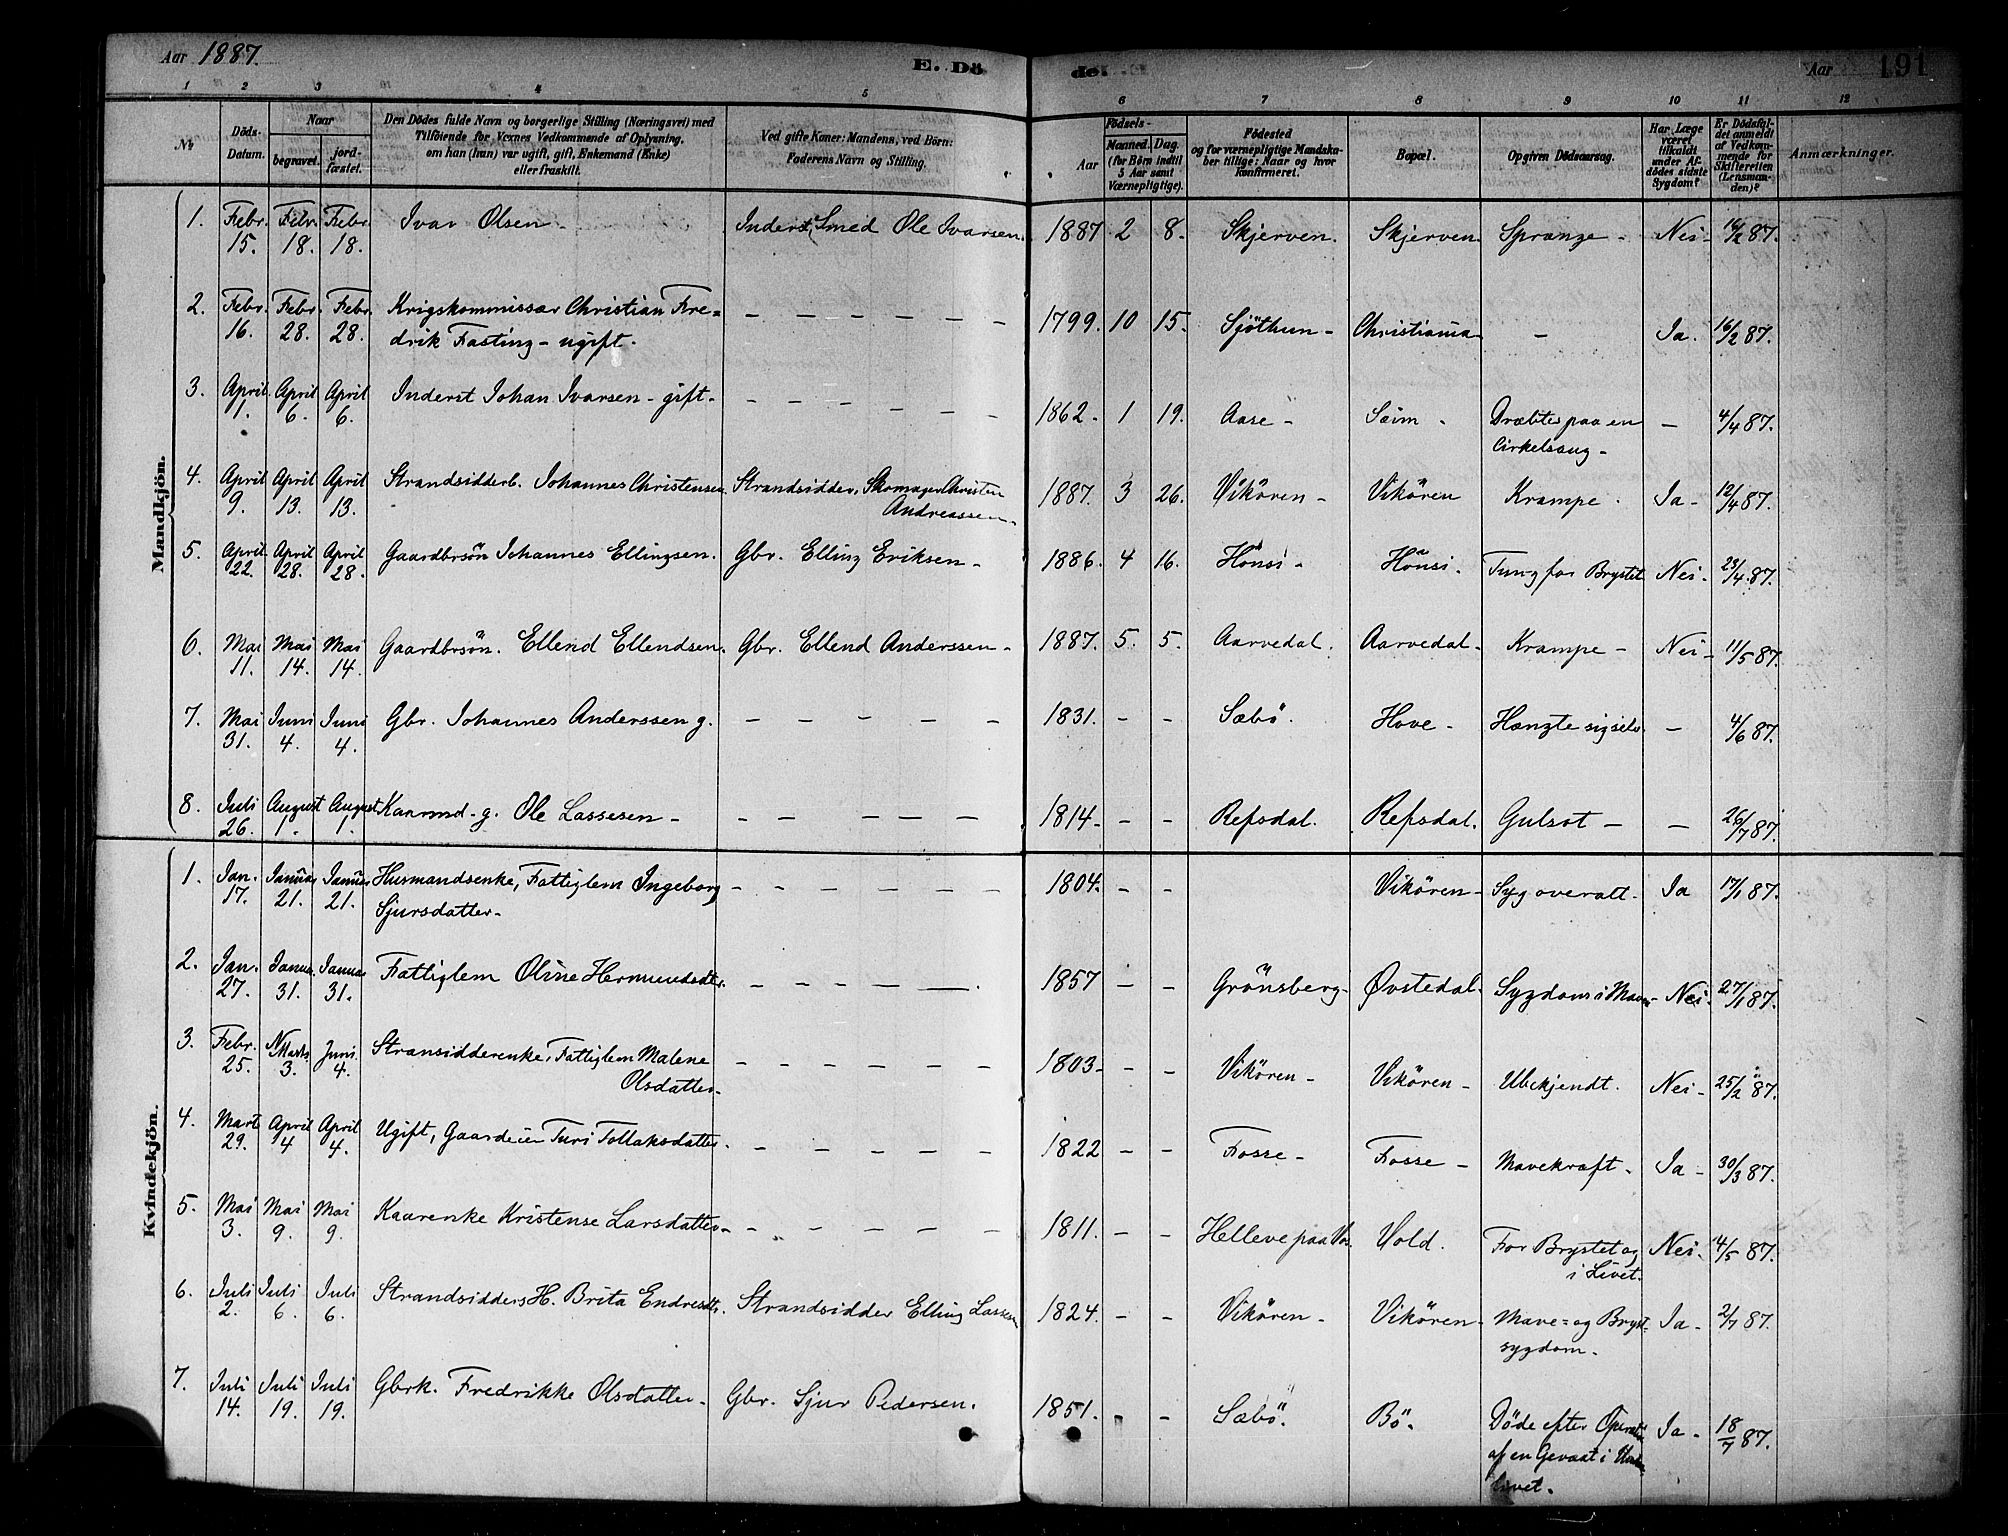 Aar 1887. E. Dö de. Aar 191
1 2 3 4 5 6 7 8 9 10 11 12
No Döds-Datum. Naar begravet. jordfæstet. Den Dödes fulde Navn og borgerlige Stilling (Næringsvei) med Tilföiende for Voxnes Vedkommende af Oplysning, om han (hun) var ugift, gift, Enkemand (Enke) eller fraskilt. Ved gifte Koner: Mandens, ved Börn: Faderens Navn og Stilling. Aar Födsels- Maaned. Dag. (for Börn indtil 3 Aar samt Værnepligtige). Födested og for værnepligtige Mandskaber tillige: Naar og hvor Konfirmeret. Bopæl. Opgiven Dödsaarsag. Har Læge været tilkaldt under Afdödes sidste Sygdom? Er Dödsfaldet anmeldt af Vedkommende for Skifteretten (Lensmanden)? Anmærkninger.
Mandkjön.
1. Febr. 15. Febr. 18. Febr. 18. Ivar Olsen. Inderst, Smed Ole Ivarsen. 1887 2 8. Skjerven. Skjerven. Sprange - Nei - 16/2 87.
2. Febr. 16. Febr. 28. Febr. 28. Krigskommissær Christian Fre=
drik Fasting - ugift. - - - - - - 1799. 10 15. Sjöthun - Christiania - - Ja. 16/2 87.
3. April 1. April 6. April 6. Inderst Johan Ivarsen - gift. - - - - - - 1862. 1 19. Aase - Seim - Dræbtes paa en
Cirkelsaug - - 4/4 87.
4. April 9. April 13. April 13. Strandsidderb. Johannes Christensen. Strandsidder, Skomager Christen
Andreassen. 1887. 3 26. Vikören - Vikören Krampe. Ja - 12/4 87.
5. April 22. April 28. April 28. Gaardbrsön Johannes Ellingsen. Gbr. Elling Eriksen - 1886. 4 16. Hönsi - Hönsi. Tung for Brystet Nei - 23/4 87.
6. Mai 11. Mai 14. Mai 14. Gaardbrsön. Ellend Ellendsen. Gbr. Ellend Anderssen - 1887. 5. 5. Aarvedal. Aarvedal - Krampe - Nei - 11/5 87.
7. Mai 31. Juni 4. Juni 4. Gbr. Johannes Anderssen g. - - - - - 1831. - - Sæbö. Hove - Hængte sig selv. - 4/6 87.
8. Juli 26. August 1. August 1. Kaarmd. g. Ole Lassesen - - - - - - 1814 - - - Refsdal. Refsdal. Gulsot - - 26/7 87.
Kvindekjön.
1. Jan. 17. Januar 21. Januar 21. Husmandsenke, Fattiglem Ingeborg
Sjursdatter - - - - - - - 1804. - - Vikören - Syg overalt. Ja 17/1 87.
2. Jan. 27. Januar 31. Januar 31. Fattiglem Oline Hermundsdtr. - - - - - 1857 - - Grönsberg - Øvstedal - Sygdom i Maven - Nei - 27/1 87.
3. Febr. 25. Marts 3. Juni 4. Stransidderenke, Fattiglem Malene
Olsdatter - - - - - - - 1803 - - - Vikören - Vikören - Ubekjendt. Nei - 25/2 87.
4. Mart 29. April 4 April 4. Ugift, Gaardeier Turi Tollaksdatter. - - - - - - 1822 - - Fosse - Fosse - Mavekræft. Ja - 30/3 87.
5. Mai 3. Mai 9. Mai 9. Kaarenke Kristense Larsdatter - - - - - - 1811. - - Helleve paa Vos. Vold. For Brystet og
i Livet. Nei. 4/5 87.
6. Juli 2. Juli 6. Juli 6. Strandsidders H. Brita Endresdtr. Strandsidder Elling Lassesen 1824. - - Vikören - Vikören - Mave= og Bryst-
sygdom - Ja - 2/7 87.
7. Juli 14. Juli 19. Juli 19. Gbrk. Fredrikke Olsdatter - Gbr. Sjur Pedersen. 1851. - - Sæbö. Bö. Döde efter Operation
af en Gevæxt i Under-
livet. Ja - 18/7 87.